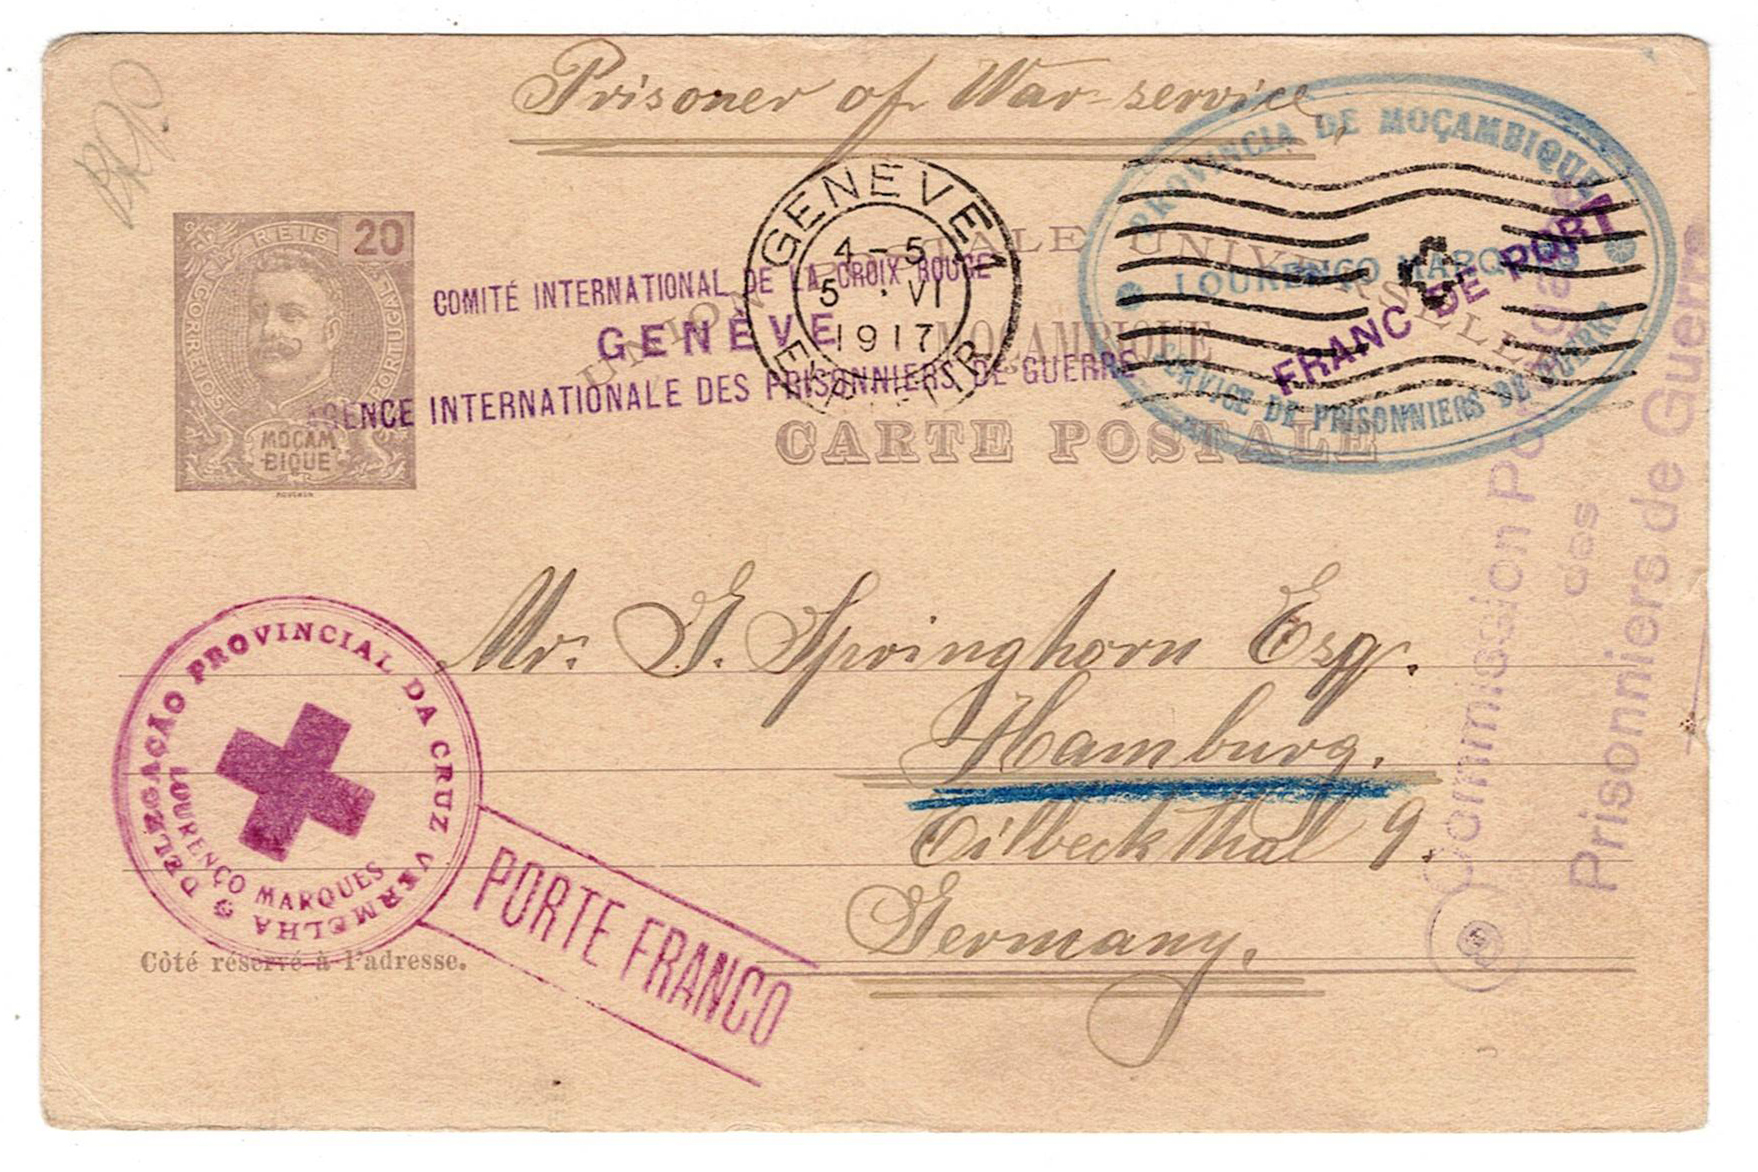 Prisoner of War-service
REIS 20
CORREIOS
PORTUGAL
MOÇAM
BIQUE
UNION POSTALE UNIVERSELLE
MOÇAMBIQUE
CARTE POSTALE
COMITÉ INTERNATIONAL DE LA CROIX ROUGE
GENÈVE
AGENCE INTERNATIONALE DES PRISONNIERS DE GUERRE
GENEVE 1
4-5
5 · VI
1917
PROVINCIA DE MOÇAMBIQUE
LOURENÇO MARQUES
SERVICE DE PRISONNIERS DE GUERRE
FRANC DE PORT
Commission Portugaise
des
Prisonniers de Guerre
Mr. G. Springhorn Esq.
Hamburg.
Eilbeckthal 9.
Germany.
DELEGAÇÃO PROVINCIAL DA CRUZ VERMELHA
LOURENÇO MARQUES
PORTE FRANCO
Côté réservé à l'adresse.